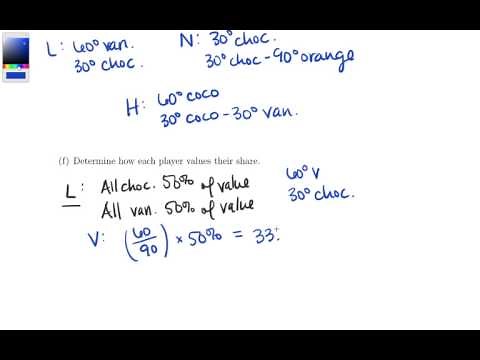 L: 60° van.
30° choc.
N: 30° choc.
30° choc - 90° orange
H: 60° coco
30° coco - 30° van.
(f) Determine how each player values their share.
L: All choc. 50% of value
All van. 50% of value
60° V
30° choc.
V: (60/90) × 50% = 33